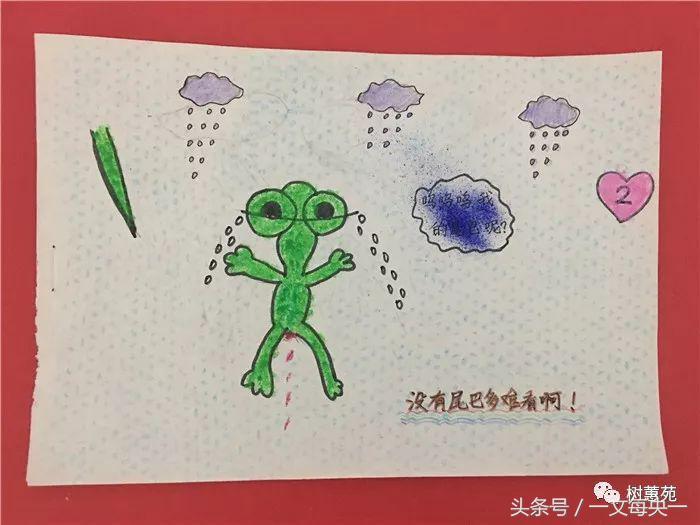 呜呜呜 我
的尾巴呢?
2
没有尾巴多难看啊！
树蕙苑
头条号／一文每央一